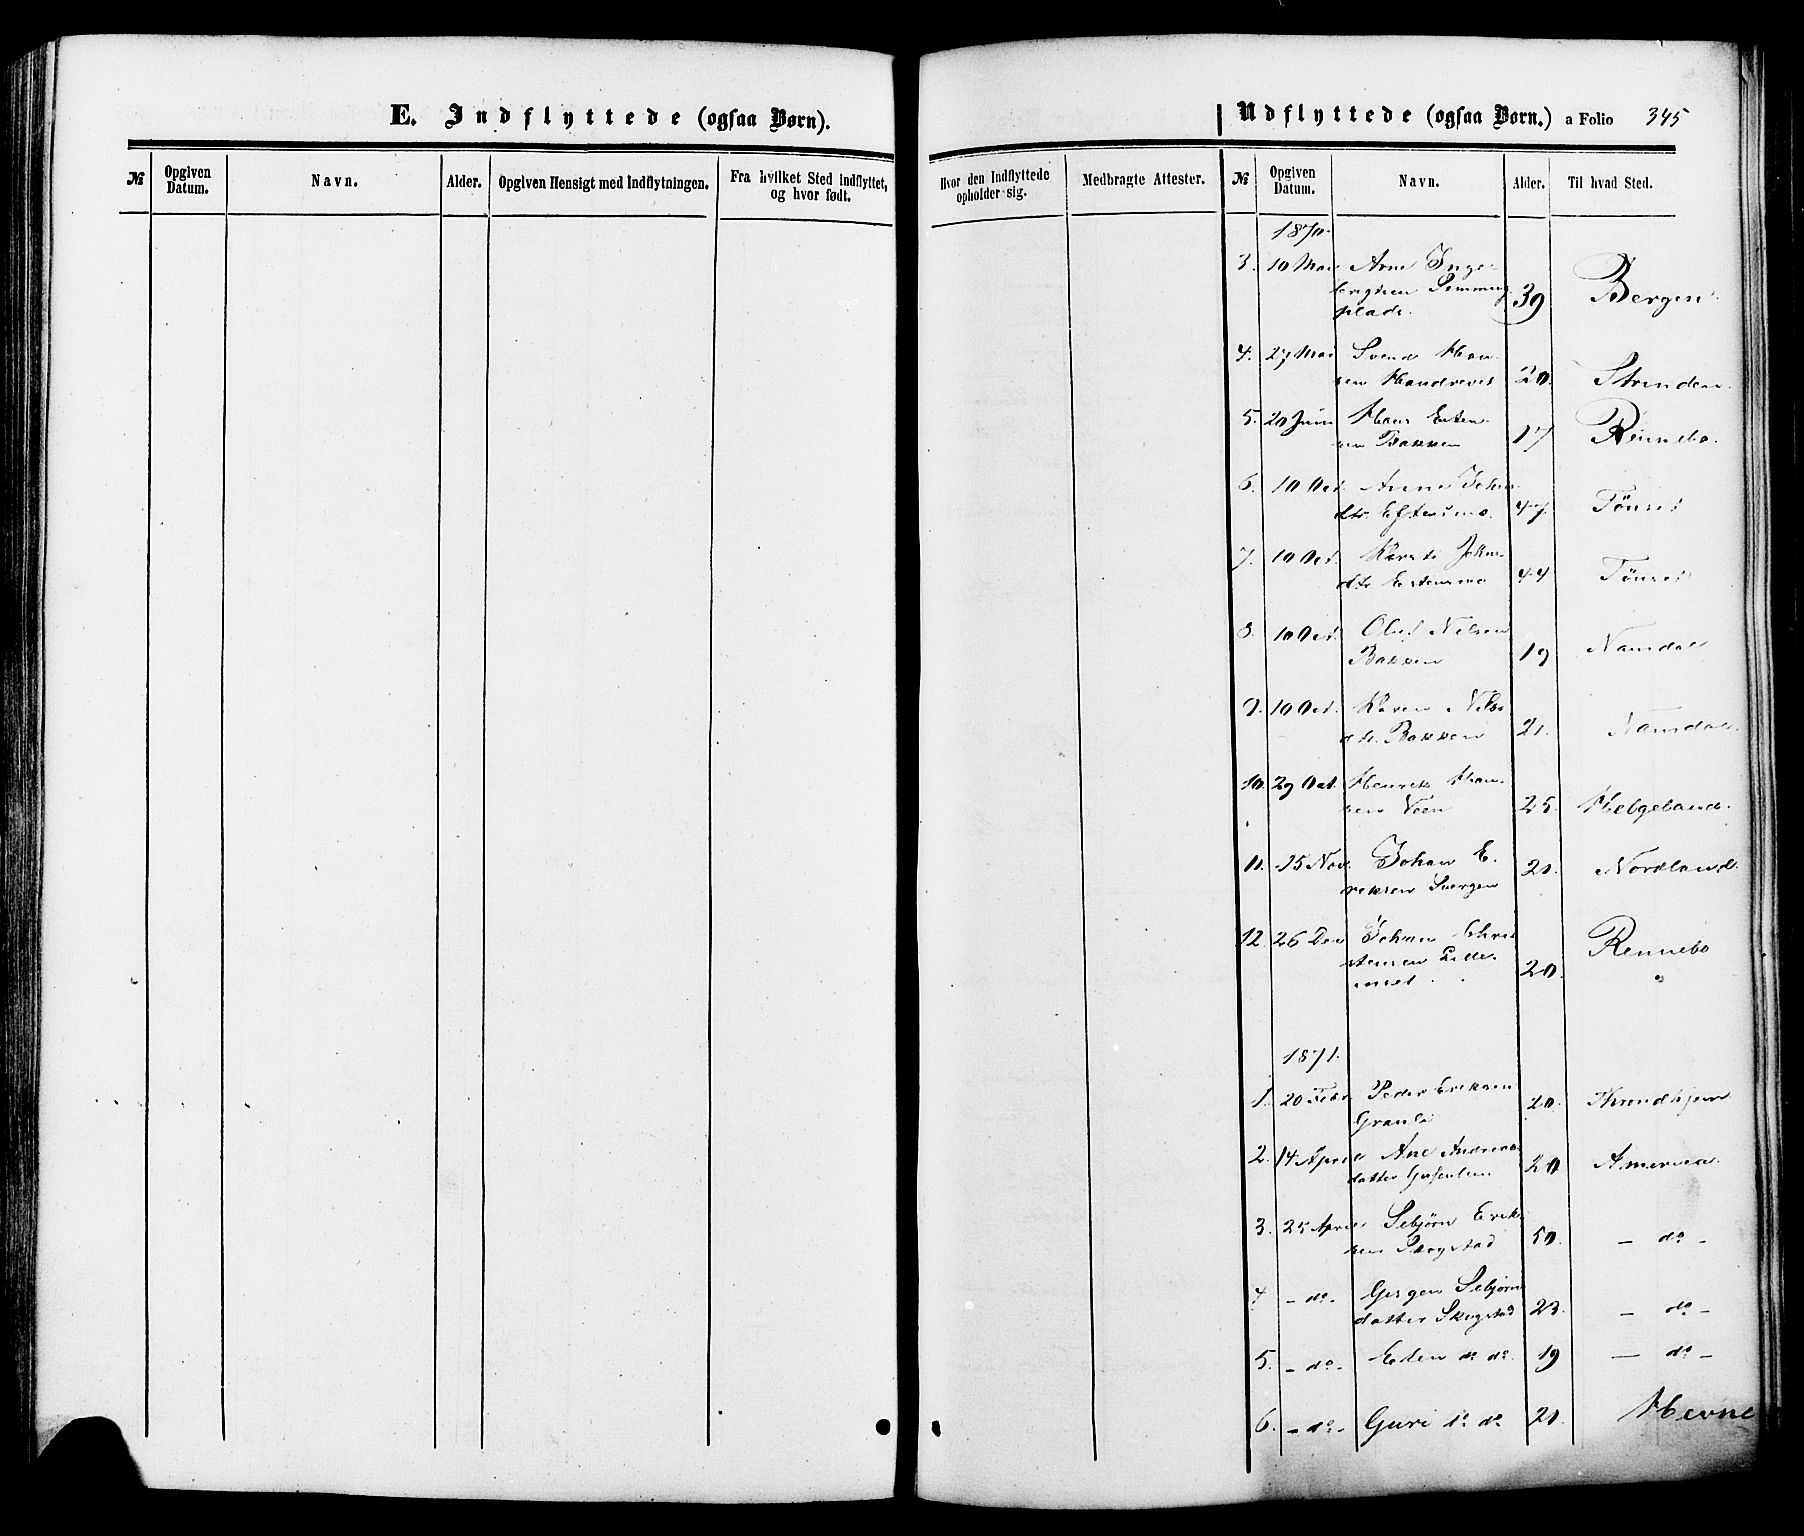 E. Indflyttede (ogsaa Børn).
№ Opgiven Datum. Navn. Alder. Opgiven Hensigt med Indflytningen. Fra hvilket Sted Indflyttet, og hvor født.
Udflyttede (ogsaa Børn.) a Folio 345
Hvor den Indflyttede opholder sig. Medbragte Attester. № Opgiven Datum. Navn. Alder. Til hvad Sted.
1870.
3. 10 Mai Arne Inge-
brigtsen
plads. 39 Bergen
4. 27 Mai Svend Han-
sen 20. Strinden.
5. 20 Juni Hans Esten-
sen Bakken 17 Rennebo.
6. 10 Oct. Anne Johns-
dtr. Estensmo. 47. Tönset
7. 10 Oct. Kirsti Johns-
dtr Estensmo 44 Tönset
8. 10 Oct. Oluf Nilsen
Bakken 19 Namdal
9. 10 Oct. Karen Nils-
dtr. Bakken 21. Namdal.
10. 29 Oct. Henrik Han-
sen Veen 25. Helgeland.
11. 15 Nov. Johan E-
riksen 21. Nordland.
12. 26 Dec Johan Chri-
stensen
20. Rennebo
1871.
1. 20 Febr. Peder Eriksen
Granli 20. Throndhjem
2. 14 April Ane Andreas-
datter 20 America.
3. 25 April Sebjørn Erik-
sen Skogstad 50. - do -
4 - do - Sebjørns-
datter Skogstad 23. - do -
5. - do - Esten do do. 19 - do -
6. - do - Guri do do 21. Hevne